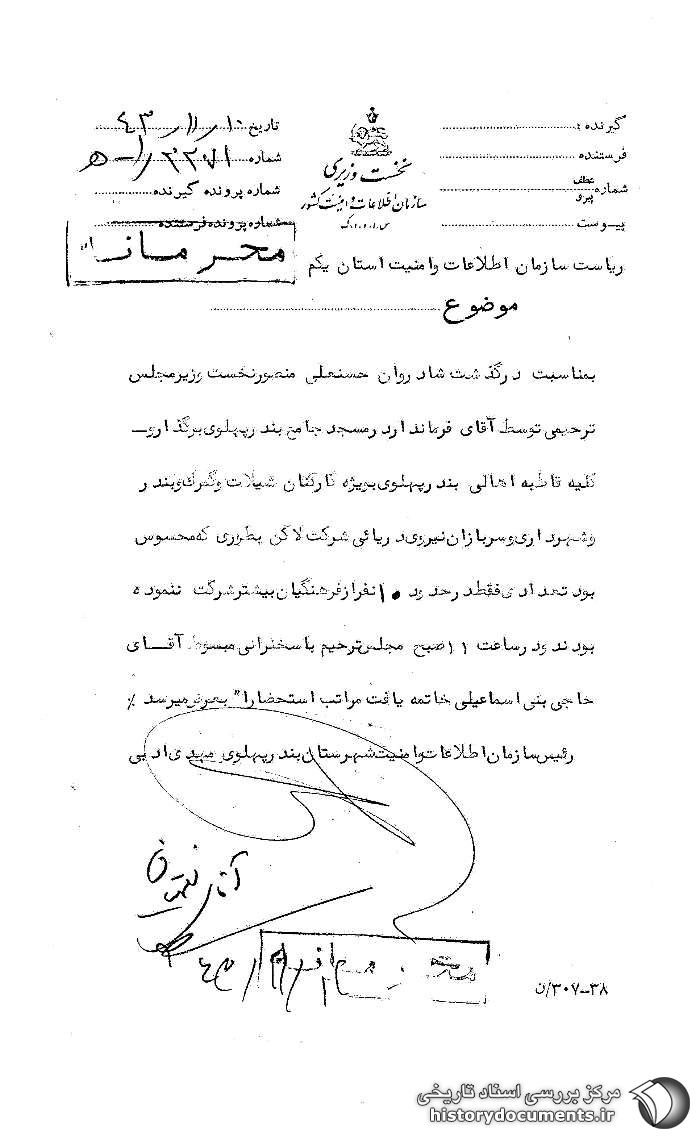 گیرنده :
فرستنده
شماره عطف پیرو
پیوست
نخست وزیری
سازمان اطلاعات و امنیت کشور
س.ا.و.ا.ک
تاریخ ۴۳/۱۱/۱۰
شماره
شماره پرونده گیرنده
شماره پرونده فرستنده
محرمانه
ریاست سازمان اطلاعات وامنیت استان یکم
موضوع
بمناسبت درگذشت شادروان حسنعلی منصورنخست وزیرمجلس
ترحیمی توسط آقای فرمانداردرمسجد جامع بندرپهلوی برگذارو ــ
کلیه قاطبه اهالی بندرپهلوی بویژه کارکنان شیلات وگمرک وبندر
وشهرداری وسربازان نیروی دریائی شرکت لاکن بطوری که محسوس
بود تعدادی فقط درحدود ۱۰ نفرازفرهنگیان بیشترشرکت ننموده
بودند ودرساعت ۱۱ صبح مجلس ترحیم باسخنرانی مبسوط آقــای
حاجی بنی اسماعیلی خاتمه یافت مراتب استحضارا" بعرض میرسد ٪
رئیس سازمان اطلاعات وامنیت شهرستان بندرپهلوی مهدی ادیبی
آقای
۳۰۷-۳۸/ن
مرکز بررسی اسناد تاریخی
historydocuments.ir